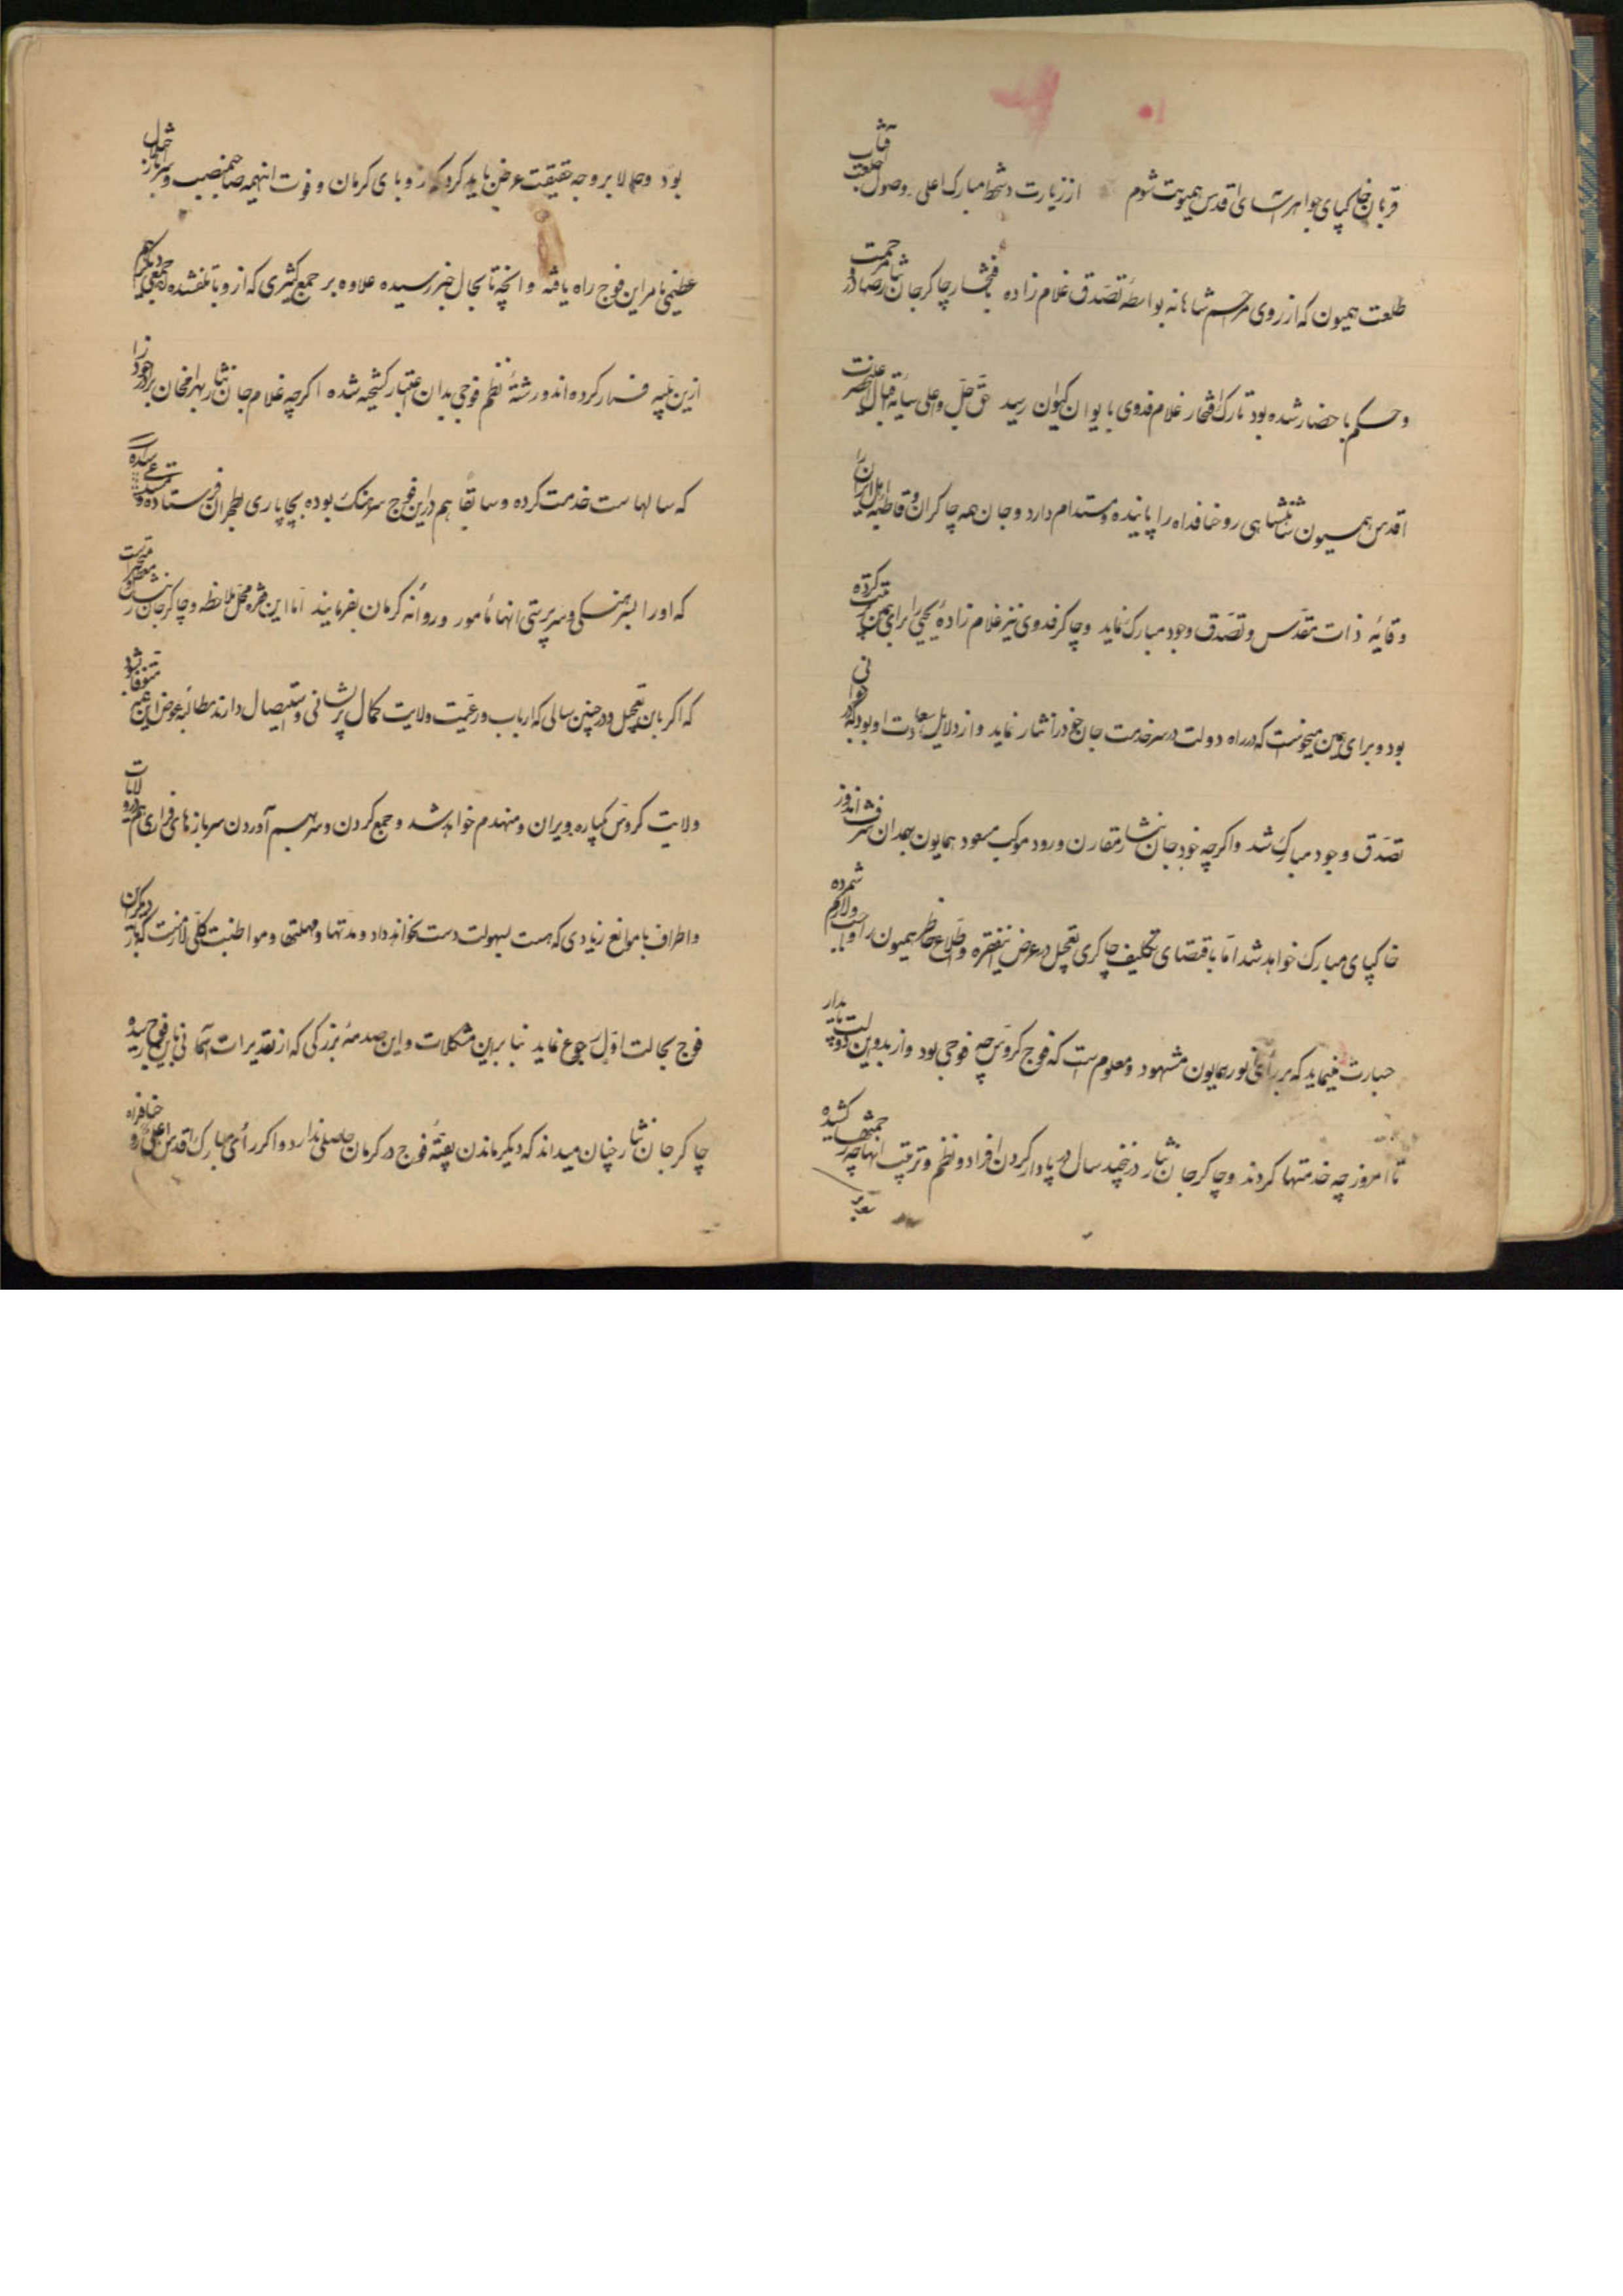 قربان خاکپای جواهرآسای اقدس همیونت شوم از زیارت دستخط مبارک اعلی و وصول خلعت آفتاب
طلعت همیون که از روی مراحم شاهانه بواسطه تصدق غلام زاده بافتخار چاکر جان نثار مرحمت
و حکم باحضار شده بود تارک افتخار غلام فدوی بایوان کیوان رسید حق جل و علی سایه اقبال اعلیحضرت
اقدس همیون شاهنشاهی روحنا فداه را پاینده و مستدام دارد و جان همه چاکران و قاطبه اهل ایران را
وقایه ذات مقدس و تصدق وجود مبارک نماید و چاکر فدوی نیز غلام زاده یحیی را برای همین تربیت کرده
بود و برای همین میخواست که در راه دولت در سر خدمت جان خود را نثار نماید و از دلایل سعادت او بود که
تصدق وجود مبارک شد و اگرچه خود جان نثار مقارن ورود موکب مسعود همایون بهمدان شرف اندوز
خاکپای مبارک خواهد شد اما باقتضای تکلیف چاکری تعجیل در عرض اینفقره و اطلاع خاطر همیون را واجب و لازم شمرده
جسارت مینماید که بر رأی انور همایون مشهود و معلوم است که فوج کروس چه فوجی بود و از بدو این دولت پایدار
تا امروز چه خدمتها کردند و چاکر جان نثار در اینچند سال در پادار کردن افراد و نظم و ترتیب انها چه زحمتها کشیده
بود و حالا بر وجه حقیقت عرض باید کرد که از وبای کرمان و فوت اینهمه صاحبمنصب و سرباز اختلال
عظیمی بامر این فوج راه یافته و انچه تا بحال خبر رسیده علاوه بر جمع کثیری که از وبا تلف شده اند جمعی دیگر هم
ازین بلیه فرار کرده اند و رشته نظم فوجی بدان اعتبار گسیخته شده اگرچه غلام جان نثار بهرامخان برادر خود را
که سالهاست خدمت کرده و سابقا هم در این فوج سرهنگ بوده بچاپاری بطهران فرستاده و مستدعی شده
که او را بسرهنگی و سرپرستی انها مأمور و روانه کرمان بفرمایند اما این فقره محل ملاحظه و چاکر جان نثار
که اگر باین تعجیل و در چنین سالی که ارباب و رعیت ولایت کمال پریشانی و استیصال دارند مطالبه عوض این
ولایت کروس یکباره ویران و منهدم خواهد شد و جمع کردن و سر بهم آوردن سربازهای فراری هم از ولایات
و اطراف با موانع زیادی که هست بسهولت دست نخواهد داد و مدتها و مهلتها و مواظبت کلی لازمست که باز
فوج بحالت اول رجوع نماید بنا براین مشکلات و این صدمه بزرگی که از تقدیرات آسمانی باین فوج رسیده
چاکر جان نثار چنان میداند که دیگر ماندن بقیه فوج در کرمان حاصلی ندارد و اگر رأی مبارک اقدس اعلی روحنافداه